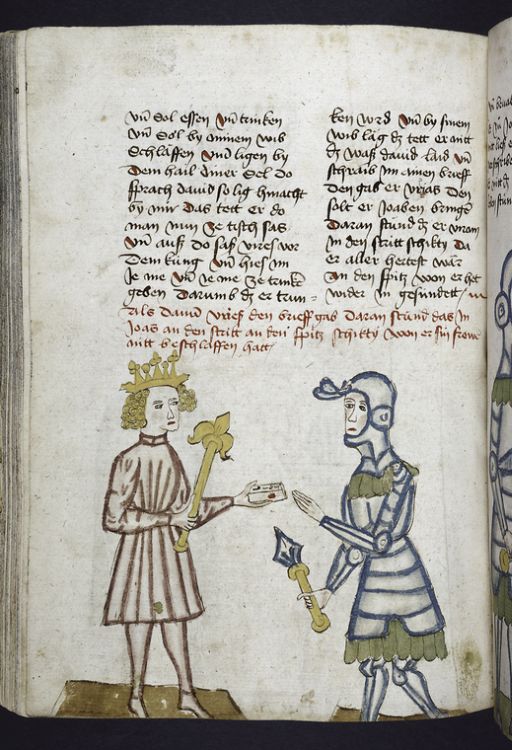 vn̄ sol essen vn̄ trinken
vn̄ sol by minem wib
Schlaffen vnd ligen by
Dem hail diner sel do
sprach dauid so lig hinacht
by mir Das tett er do
man nun ze tisch sas
vn̄ auß do saß vries vor
Dem küng vn̄ hies im
Je me vn̄ ie me ze trinkē
geben Darumb dz er trun-
ken wrd vn̄ by sinem
wib läg dz tett er nitt
dz waß dauid laid vn̄
schraib im einen brieff
Den gab er vrias Den
solt er Joaben bringē
Daran stůnd dz er vriam
in den stritt schikty Da
er aller hertest wär
An den spitz won er het
wider in gesündett
Als dauid vrief den brieff gab daran stůnd das in
Joab an den stritt an den spitz schikty won er sin frowē
nitt beschlaffen hatt